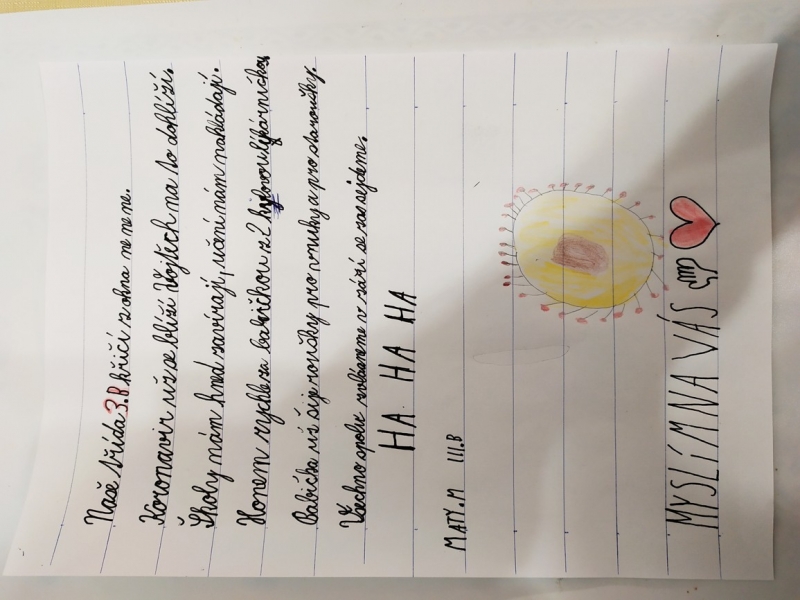 Naše třída 3.B křičí z okna ne ne ne.
Koronavir už se blíží Vojtěch na to dohlíží.
Školy nám hned zavírají, učení nám nakládají.
Honem rychle za babičkou z lékárničkou
Babička už šije roušky pro vnuky a pro staroušky.
Všechno spolu zvládneme v září se zas sejdeme.
HA HA HA HA
MATY.M III.B
MYSLÍM NA VÁS